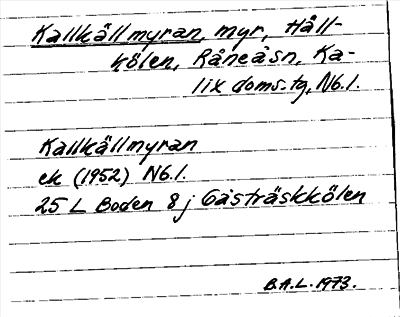 Kallkällmyran, myr, Håll-
kölen, Råneåsn, Ka-
lix doms.tg, Nb.l.
Kallkällmyran
ek (1952) Nb.l.
25 L Boden 8 j Gåsträskkölen
B.A.L. 1973.